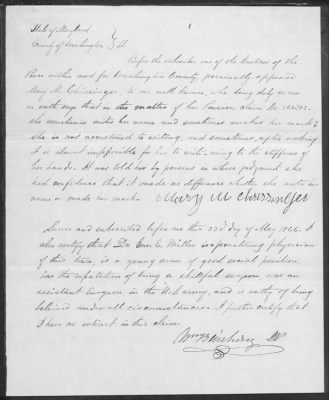 State of Maryland
County of Washington } SS.
Before the subscriber one of the Justices of the
Peace within and for Washington County, personally appeared
Mary M. to me well known, who being duly sworn
in oath says that in the matter of her Pension claim No.
she sometimes writes her name and sometimes makes her mark;
she is not accustomed to writing, and sometimes after working
it is almost impossible for her to write owing to the stiffness of
her hands. It was told her by persons in whose judgment she
had confidence that it made no difference whether she wrote her
name or made her mark. Mary M
Sworn and subscribed before me this 23d day of May I
also certify that Dr. E. Miller is a practicing physician
of this town, is a young man of good social position,
has the reputation of being a skillful surgeon, was an
assistant surgeon in the U.S. army, and is worthy of being
believed under all circumstances. I further certify that
I have no interest in this claim.
Wm JP